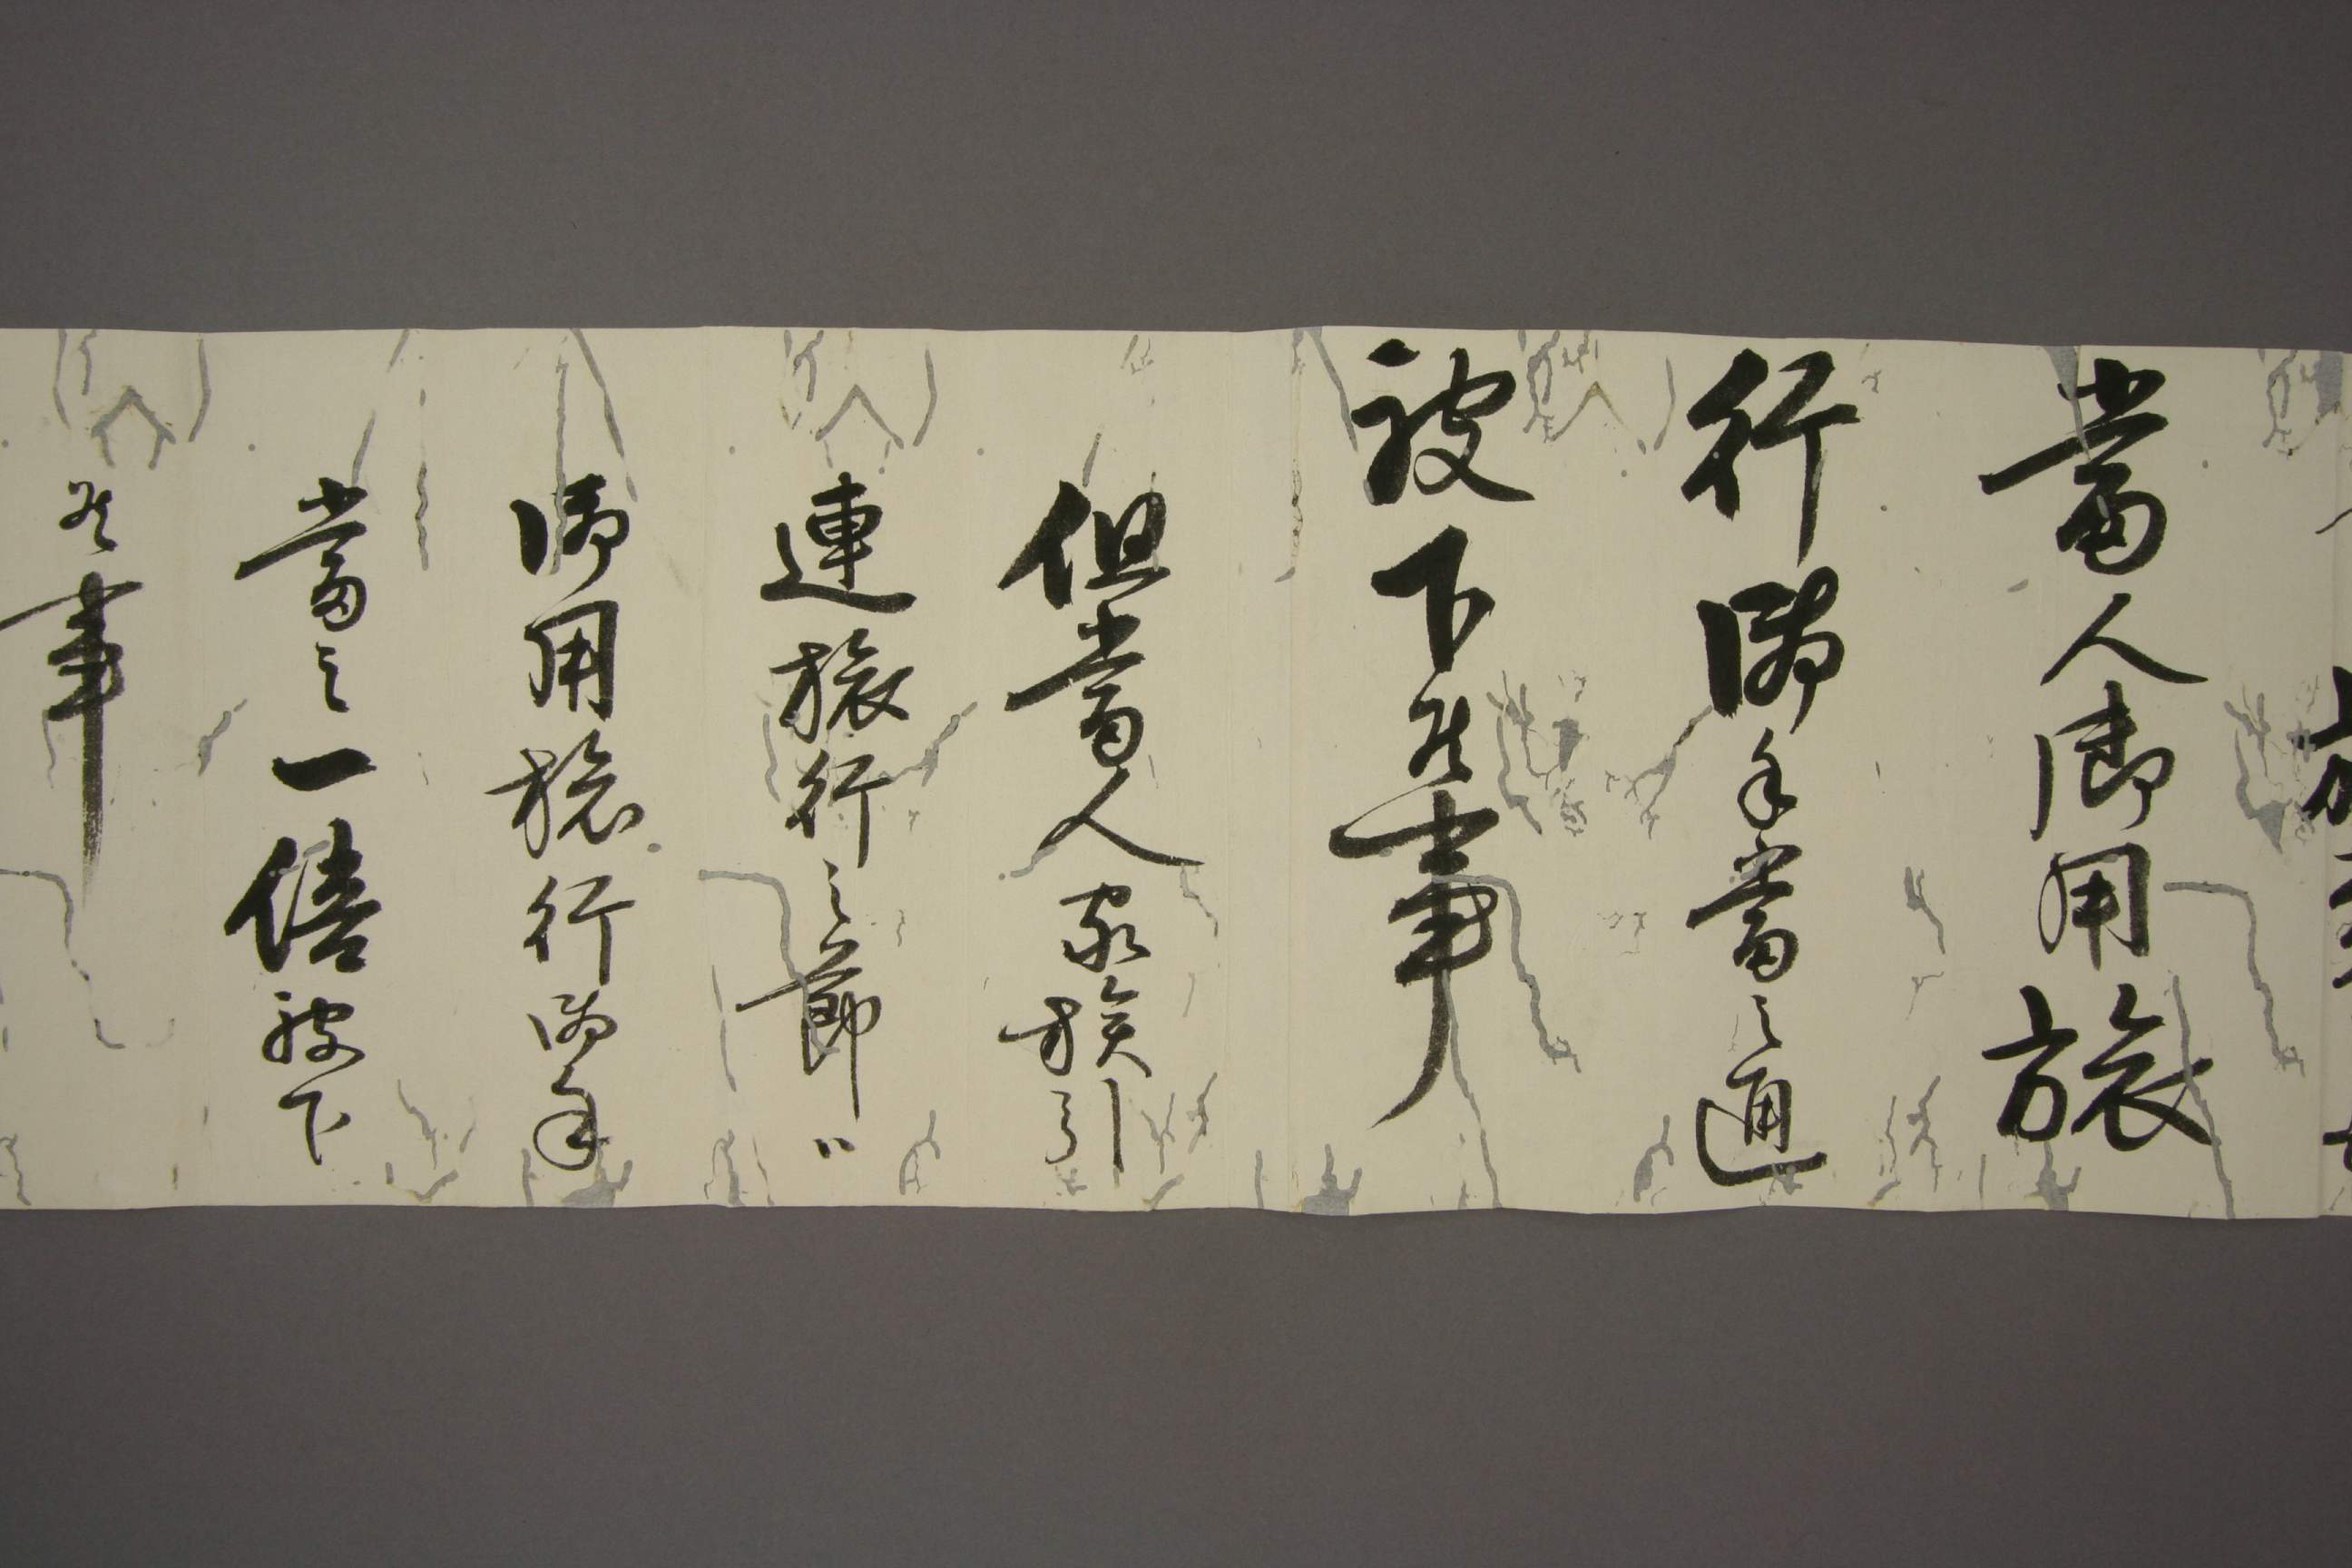 當人御用旅
行御手當之通
被下候事
但當人家族引
連旅行之節ハ
御用旅行御手
當之一倍被下
候事